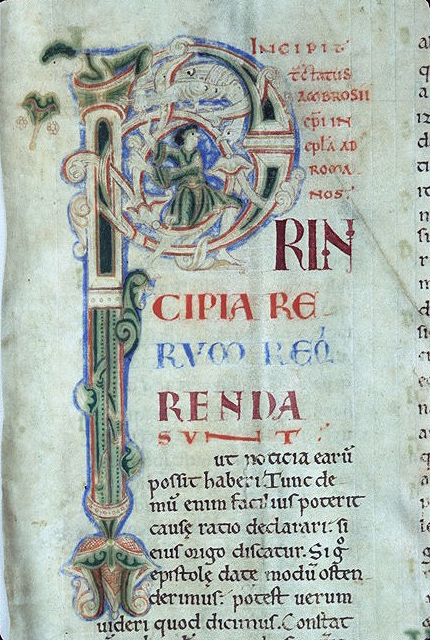 INCIPIT
tctatus
AMBROSII
epi IN
epla AD
ROMA
NOS
PRIN
CIPIA RE
RVM REQ
RENDA
SUNT.
ut noticia earū
possit haberi. Tunc de
mū enim facilius poterit
causę ratio declarari: si
eius origo discatur. Si g°
epistolę date modū osten
derimus: potest uerum
uideri quod dicimus. Constat